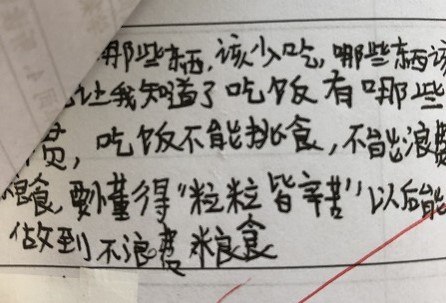 那些东西,该少吃,哪些东西该
让我知道了吃饭有哪些
员,吃饭不能挑食,不能浪费
粮食,要懂得“粒粒皆辛苦”以后能
做到不浪费粮食